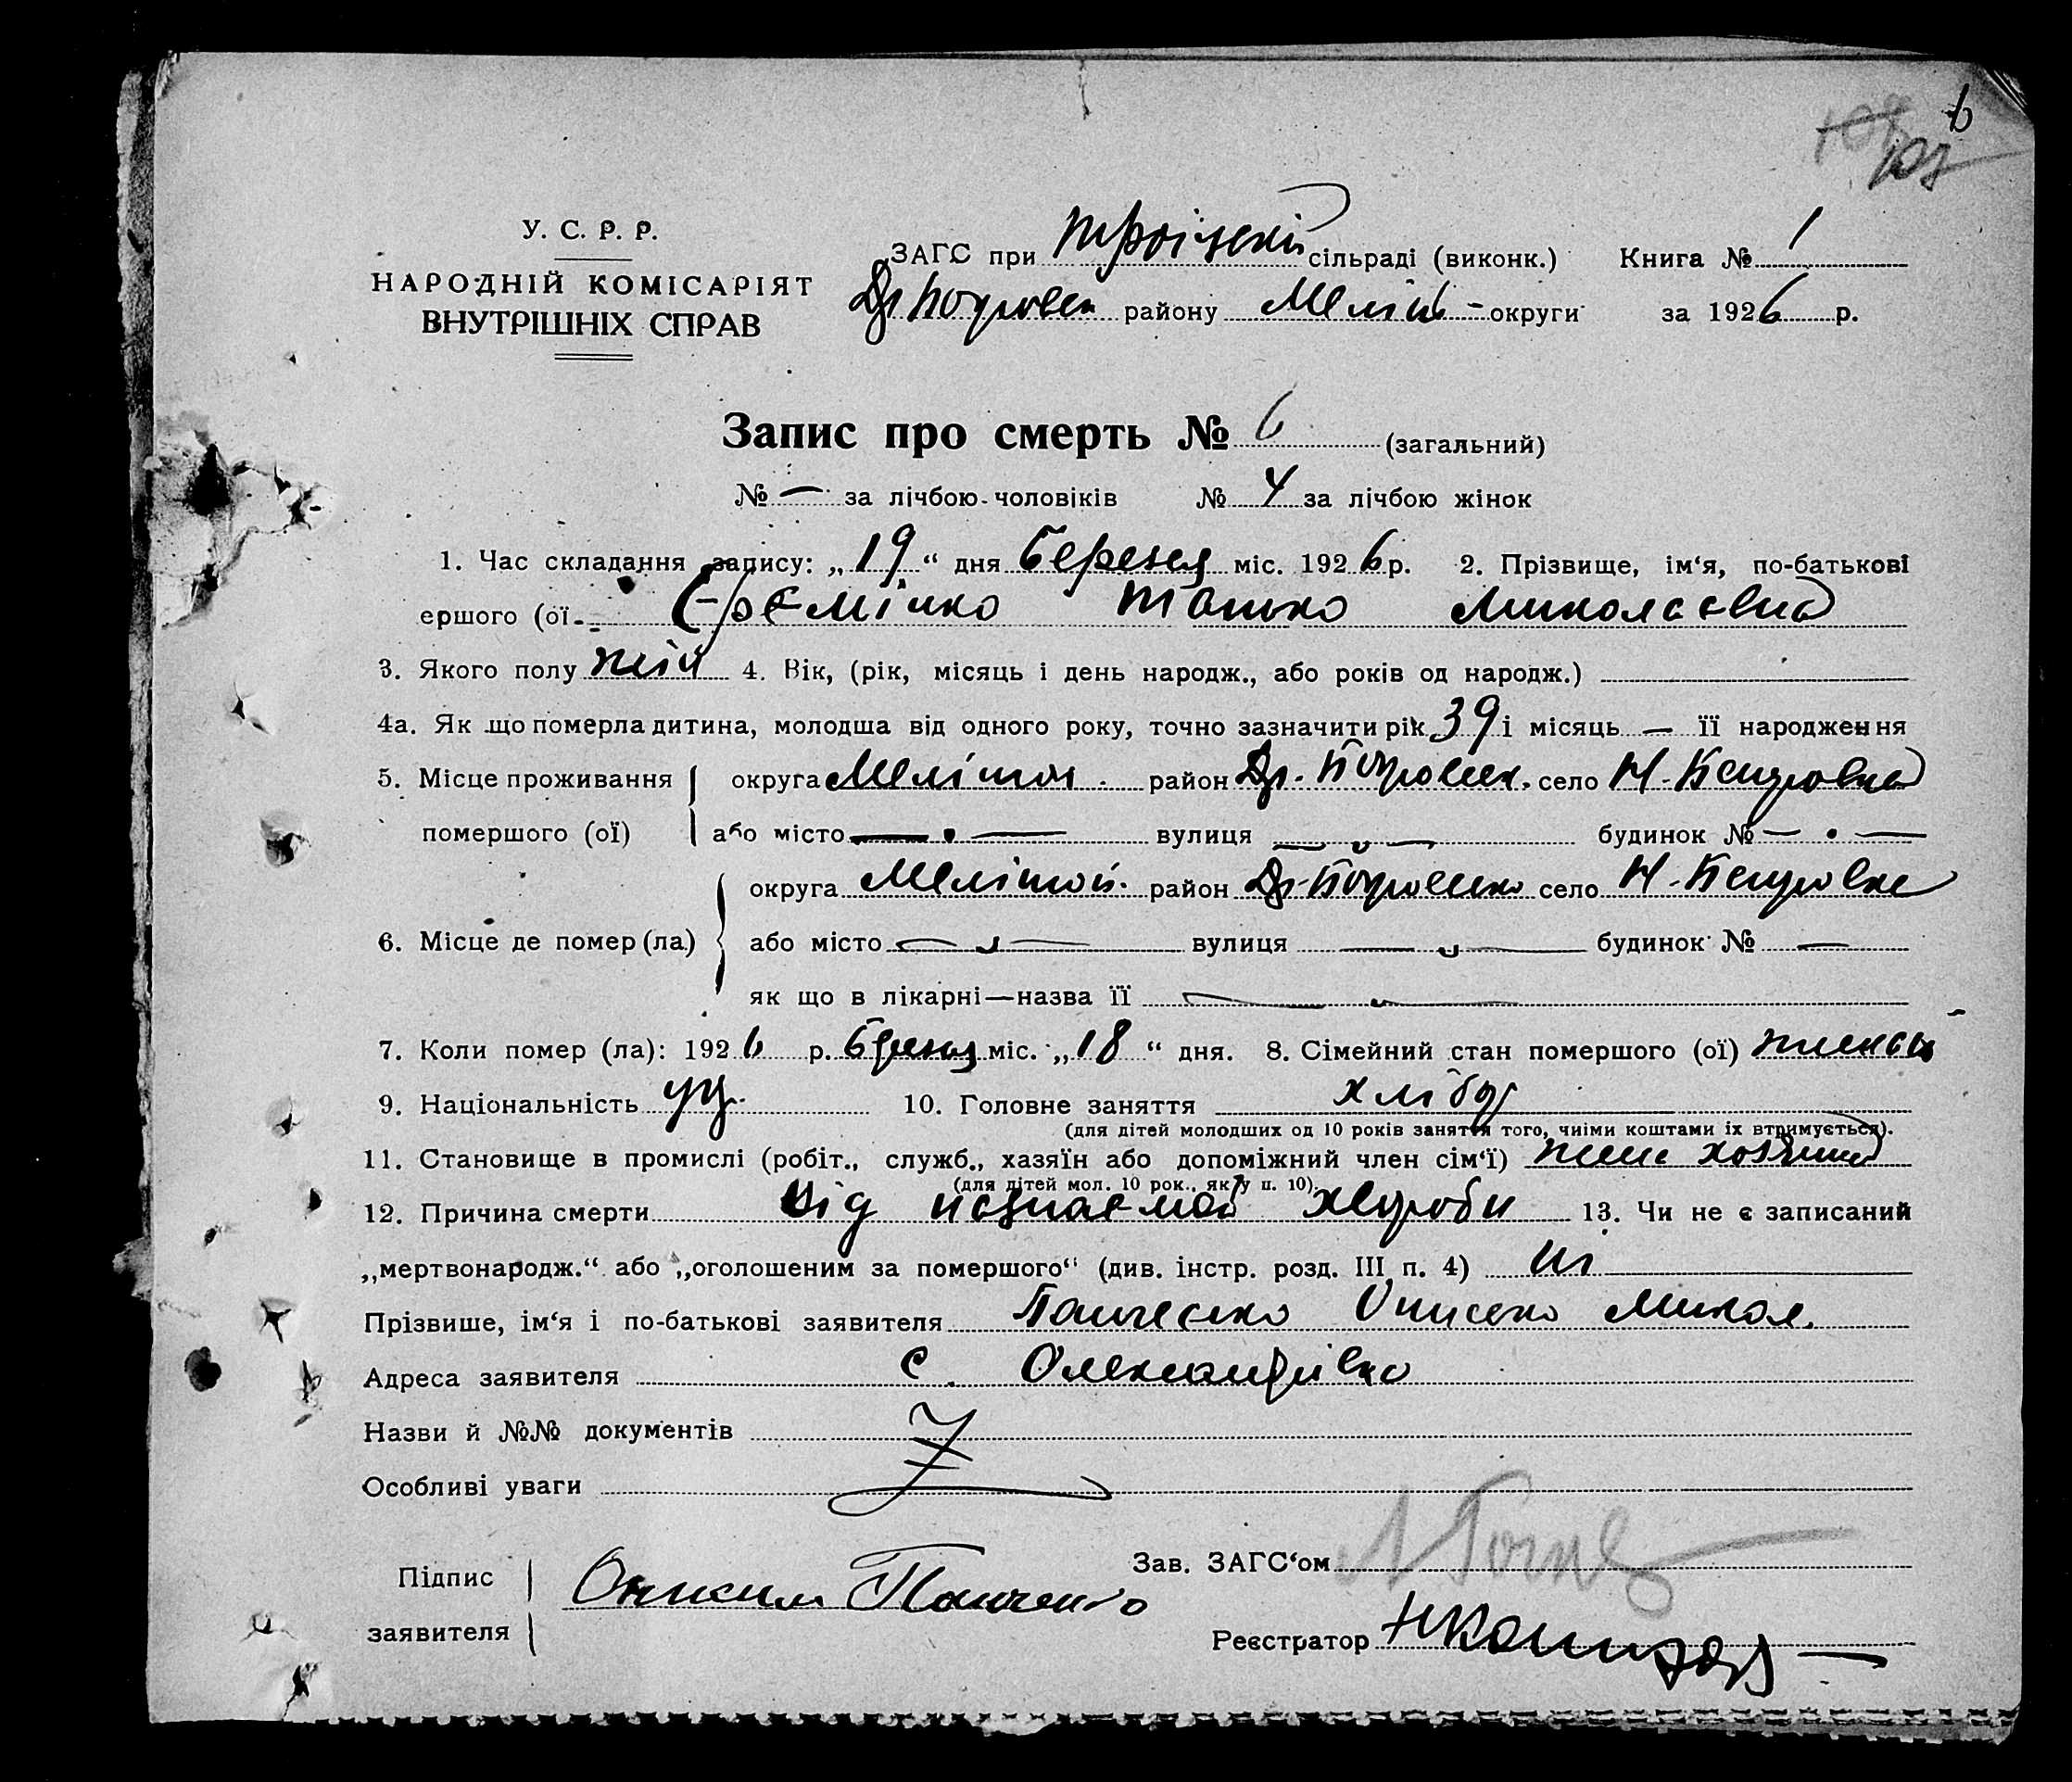 6
107
У. С. Р. Р.
НАРОДНІЙ КОМІСАРІЯТ
ВНУТРІШНІХ СПРАВ
ЗАГС при Троїцькій сільраді (виконк.) Книга № 1
району Меліт - округи за 1926 р.
Запис про смерть № 6 (загальний)
№ — за лічбою чоловіків № 4 за лічбою жінок
1. Час складання запису: „19“ дня березня міс. 1926 р. 2. Прізвище, ім‘я, по-батькові
ершого (ої Миколаєвна
3. Якого полу жін 4. Вік, (рік, місяць і день народж., або років од народж.)
4а. Як що померла дитина, молодша від одного року, точно зазначити рік 39 і місяць — її народження
5. Місце проживання округа Меліто район село
помершого (ої) або місто — вулиця — будинок № —
округа Меліто район село
6. Місце де помер (ла) або місто — вулиця — будинок № —
як що в лікарні—назва її —
7. Коли помер (ла): 1926 р. березня міс. „18“ дня. 8. Сімейний стан помершого (ої)
9. Національність укр. 10. Головне заняття хлібор
(для дітей молодших од 10 років заняття того, чиїми коштами їх втримується).
11. Становище в промислі (робіт., служб., хазяїн або допоміжний член сім‘ї)
(для дітей мол. 10 рок., як у п. 10).
12. Причина смерти від хвороби 13. Чи не є записаний
„мертвонародж.“ або „оголошеним за помершого“ (див. інстр. розд. III п. 4) ні
Прізвище, ім‘я і по-батькові заявителя Панченко Микол.
Адреса заявителя с. Олександрівка
Назви й №№ документів
Особливі уваги
Підпис Зав. ЗАГС‘ом
заявителя Панченко
Реєстратор